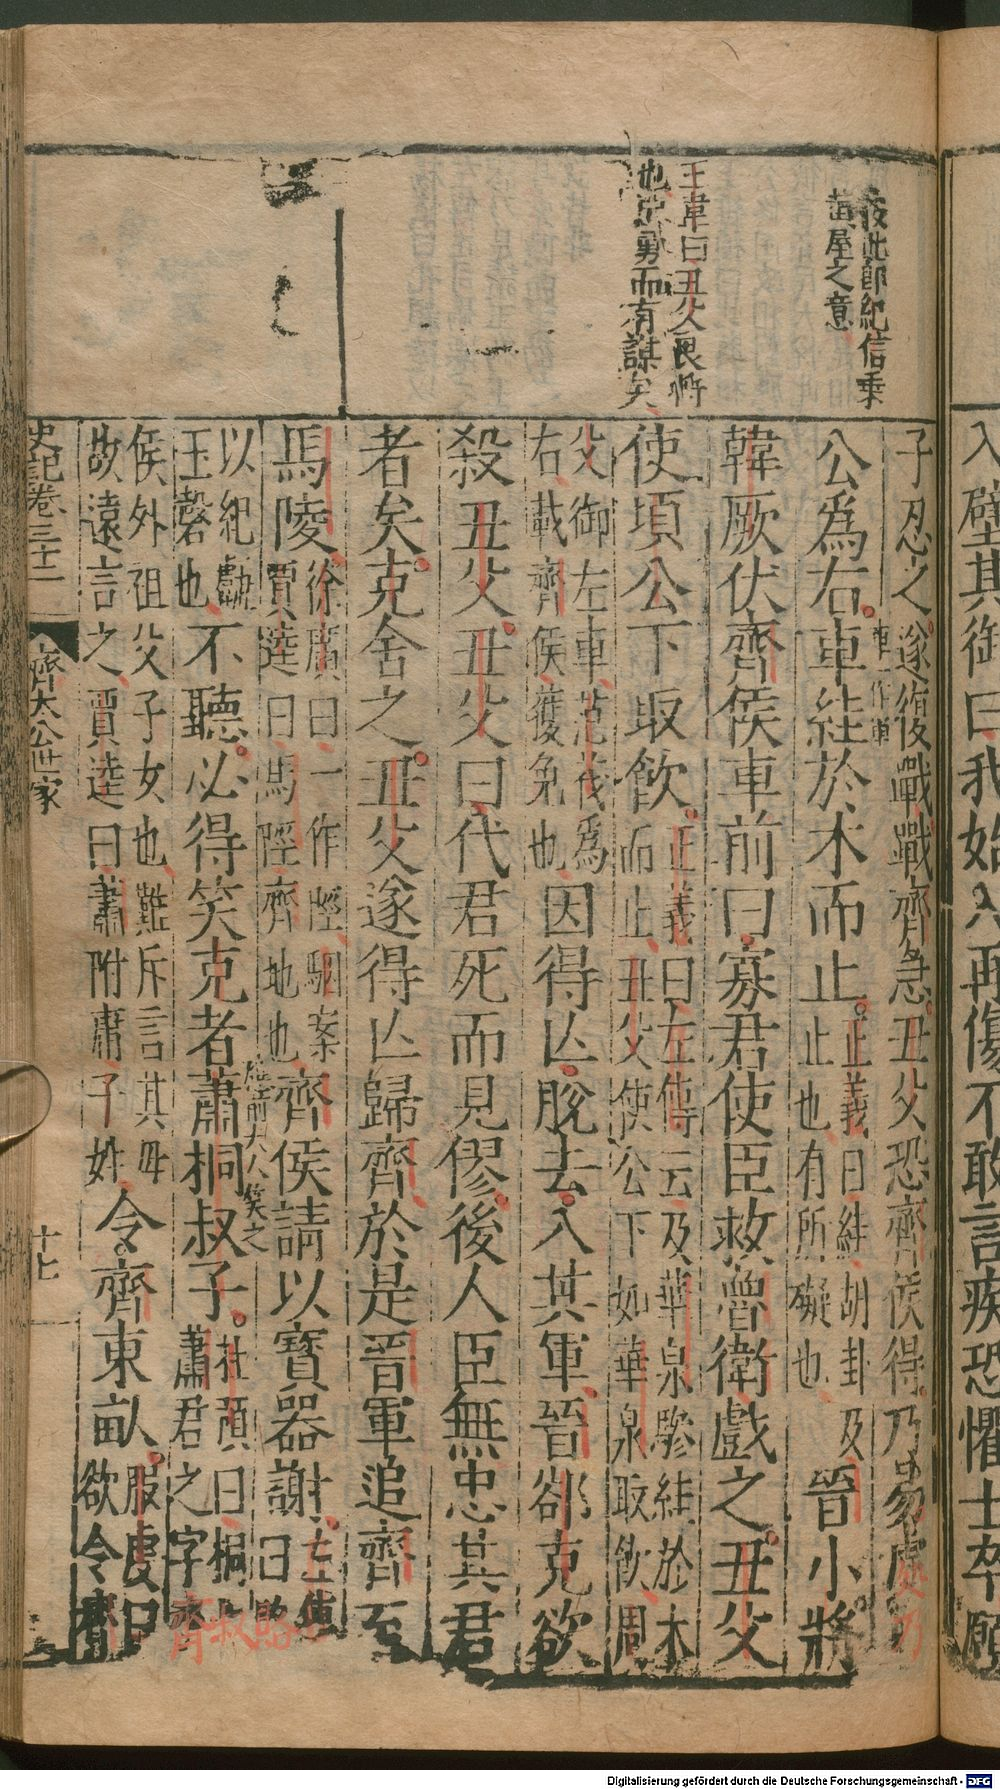 按此卽紀信乗
黄屋之意
王韋曰丑父良將
也忠勇而有謀矣
子忍之遂復戰戰齊急丑父恐齊侯得乃易處乃
公爲右車絓於木而止
車一作東
正義曰絓胡卦及
止也有所礙也
晉小將
韓厥伏齊侯車前曰寡君使臣救魯衛戲之丑父
使頃公下取飮
正義曰左傳云及華泉驂絓於木
而止丑父使公下如華泉取飮周
父御左車茷爲
右載齊侯獲免也
因得亾脫去入其軍晉郤克欲
殺丑父丑父曰代君死而見僇後人臣無忠其君
者矣克舍之丑父遂得亾歸齊於是晉軍追齊至
馬陵
徐廣曰一作陘駰案
賈逵曰馬陘齊地也
齊侯請以寶器謝
左傳
曰賂
以紀甗
玉磬也
不聽必得笑克者蕭桐叔子
應前夫人笑之
杜預曰桐叔
蕭君之字齊
侯外祖父子女也難斥言其母
故遠言之賈逵曰蕭附庸子姓
令齊東畝
服虔曰
欲令齊
史記卷三十二
齊太公世家
十七
入壁其御曰我始入再傷不敢言疾恐懼士卒願
Digitalisierung gefördert durch die Deutsche Forschungsgemeinschaft - DFG